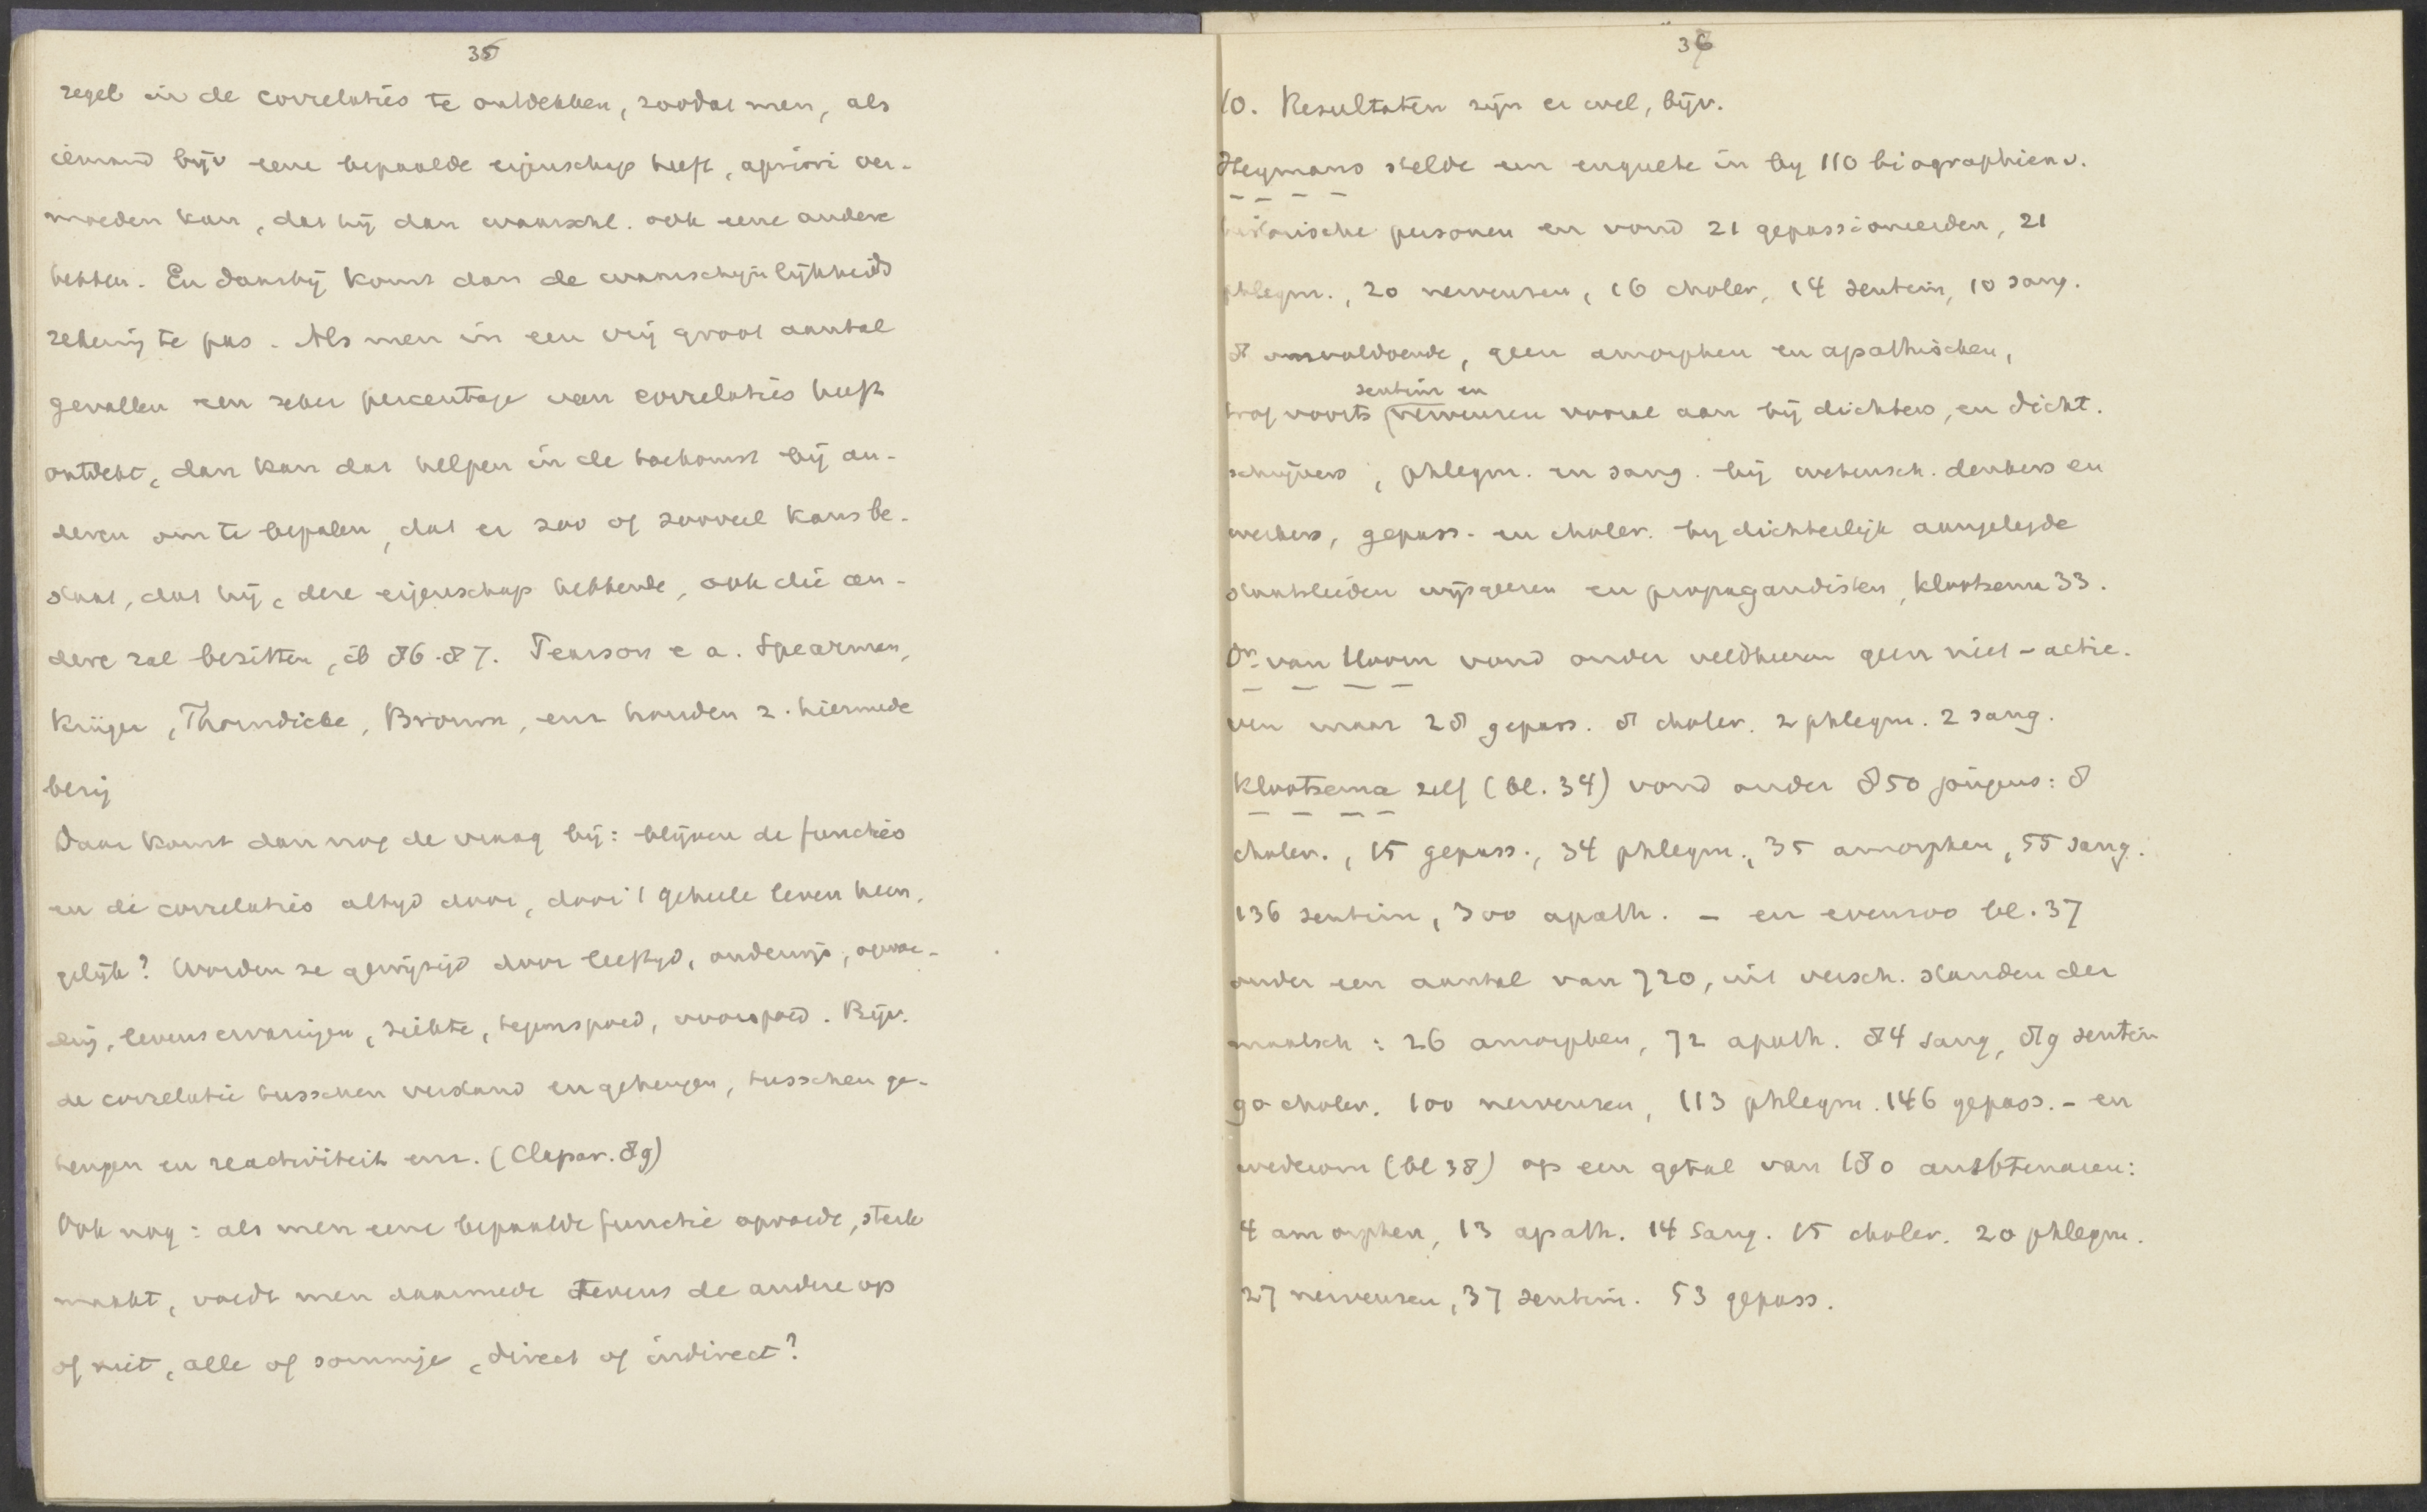 35
regels in de correlaties te ontdekken, zoodat men, als
iemand bijv eene bepaalde eigenschap heeft, apriori ver-
moeden kan, dat hij dan waarschl. ook eene andere
hebben. En daarbij komt dan de waarschijnlijkheids
rekening te pas. Als men in een vrij groot aantal
gevallen een zeker percentage van correlaties heeft
ontdekt, dan kan dat helpen in de toekomst bij an-
deren om te bepalen, dat er zoo of zooveel kans be-
staat, dat hij, deze eigenschap hebbende, ook die an-
dere zal bezitten, ib 86-87. Pearson e a. Spearman,
Krüger, Thorndicke, Brown, enz houden z. hiermede
bezig
Daar komt dan nog de vraag bij: blijven de functies
en de correlaties altyd door, door 't geheele leven heen,
gelijk? Worden ze gewijzigd door leeftyd, onderwijs, opvoe-
ding, levenservaringen, ziekte, tegenspoed, voorspoed. Bijv.
de correlatie tusschen verstand en geheugen, tusschen ge-
heugen en reactiviteit enz. (Clapar. 89)
Ook nog: als men eene bepaalde functie opvoedt, sterk
maakt, voedt men daarmede tevens de andere op
of niet, alle of sommige, direct of indirect?
36
10. Resultaten zijn er wel, bijv.
Heymans stelde een enquete in by 110 biographien v.
historische personen en vond 21 gepassioneerden, 21
phlegm., 20 nerveuzen, 16 choler, 14 sentim, 10 sang.
8 onvoldoende, geen amorphen en apathischen,
sentim en
trof voorts nerveuzen vooral aan bij dichters, en dicht.
schrijvers, phlegm. en sang. bij wetensch. denkers en
werkers, gepass. en choler. by dichterlijk aangelegde
staatslieden wijsgeeren en propagandisten, Klootsema 33.
Dr. van Hoorn vond onder veldheeren geen niet-actie-
ven maar 28 gepass. 8 choler. 2 phlegm. 2 sang.
Klootsema zelf (bl. 34) vond onder 850 jongens: 8
choler., 15 gepass., 34 phlegm., 35 amorphen, 55 sang.
136 sentim, 300 apath. - en evenzoo bl. 37
onder een aantal van 720, uit versch. standen der
maatsch: 26 amorphen, 72 apath. 84 sang, 89 sentim
90 choler. 100 nerveuzen, 113 phlegm. 146 gepass. - en
wederom (bl 38) op een getal van 180 ambtenaren:
4 amorphen, 13 apath. 14 Sang. 15 choler. 20 phlegm.
27 nerveuzen, 37 sentim. 53 gepass.